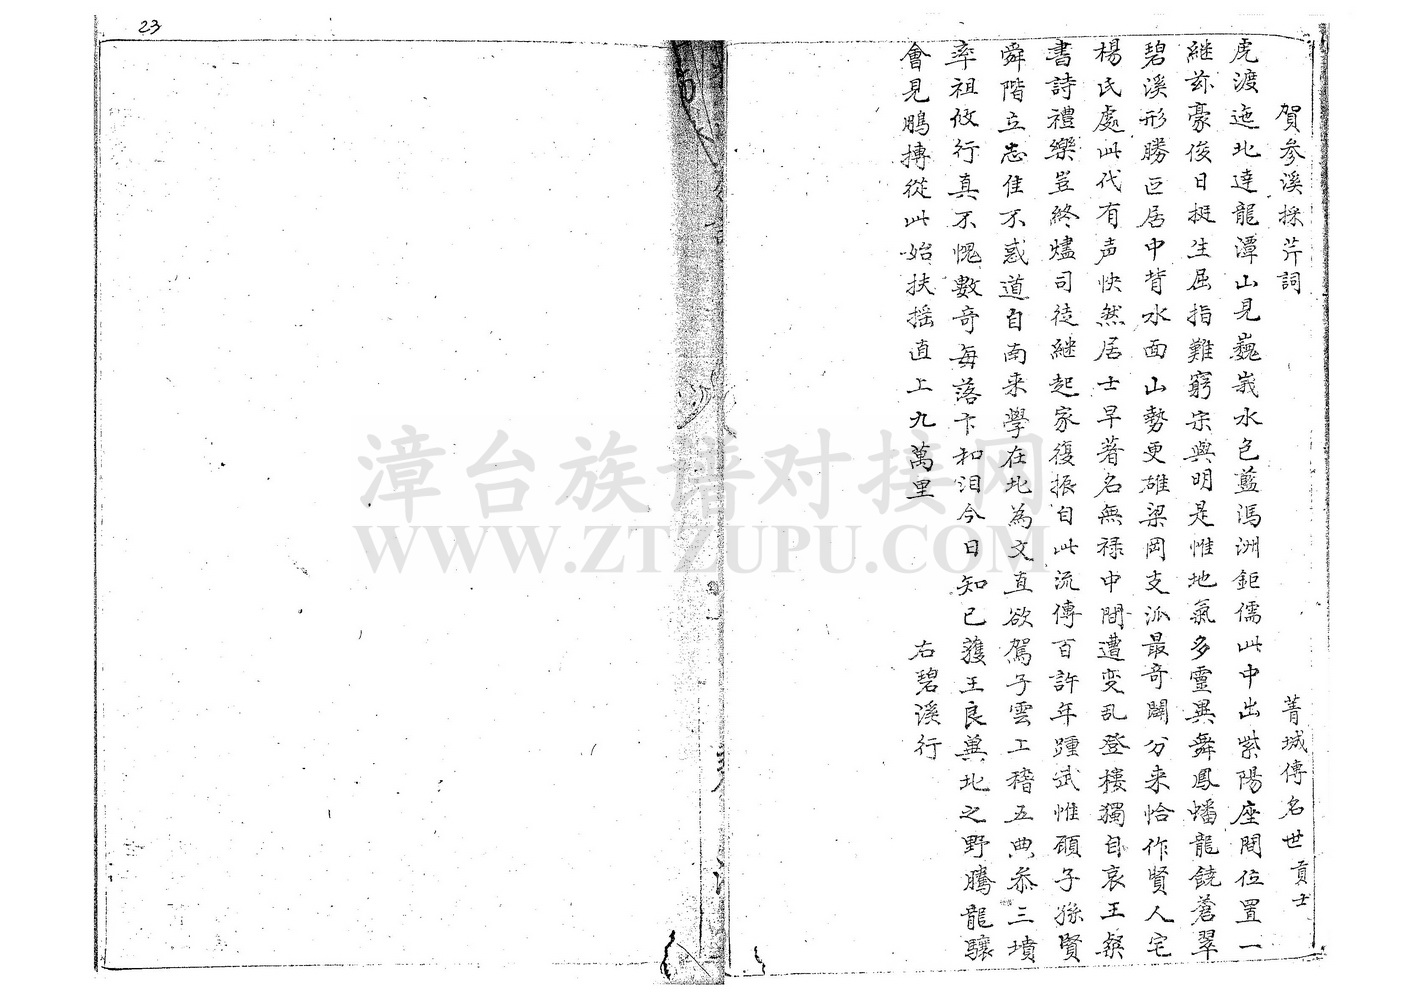 23
賀参溪採芹詞
菁城傳名世貢士
虎渡迤北達龍潭山見巍峩水色藍馮洲鉅儒此中出紫陽座間位置一
継茲豪俊日挺生屈指難窮宋與明是惟地氣多靈異舞鳳蟠龍饒蒼翠
碧溪形勝巨居中背水面山勢更雄梁岡支派最奇闢分来恰作賢人宅
楊氏處此代有声快然居士早著名無禄中間遭变乱登樓獨自哀王粲
書詩禮樂豈終燼司徒継起家復振自此流傳百許年踵武惟頋子孫賢
舜階立志隹不惑道自南来學在北為文直欲駕子雲上稽五典叅三墳
率祖攸行真不愧數奇每落卞和泪今日知己䕶王良兾北之野騰龍驤
會見鵬搏從此始扶摇直上九萬里
右碧溪行
漳台族谱对接网
WWW.ZTZUPU.COM